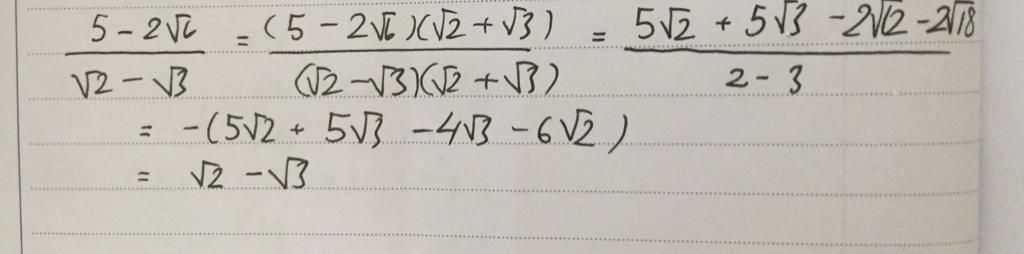 (5 - 2√6)/(√2 - √3) = ((5 - 2√6)(√2 + √3))/((√2 - √3)(√2 + √3)) = (5√2 + 5√3 - 2√12 - 2√18)/(2 - 3)
= -(5√2 + 5√3 - 4√3 - 6√2)
= √2 - √3